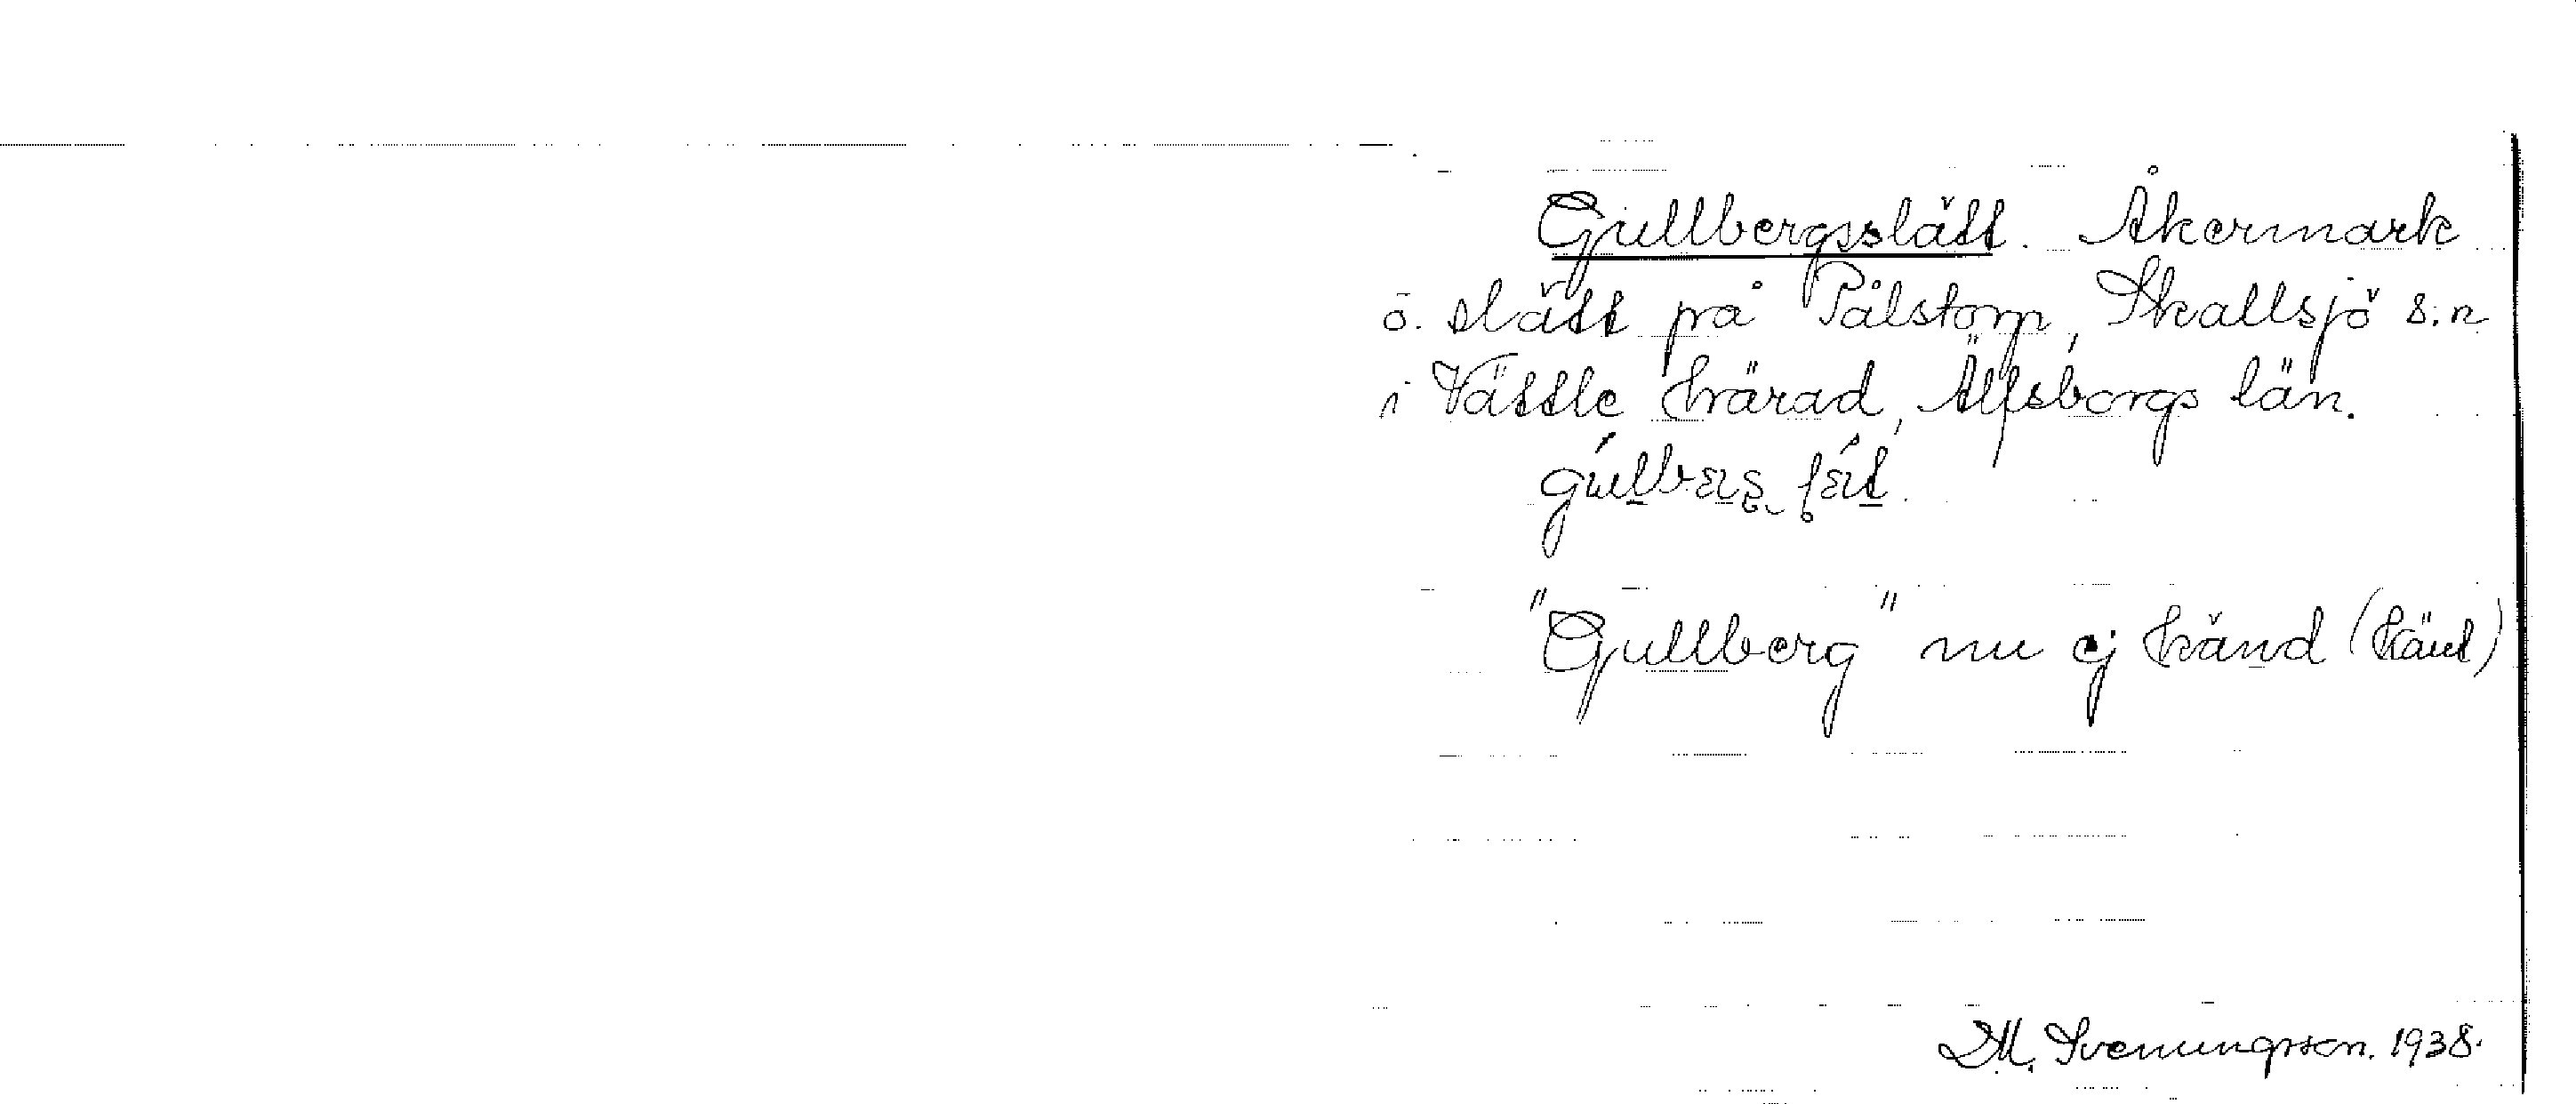 Gullbergsslätt. Åkermark
o. slätt på Pålstorp, Skallsjö s:n
i Vättle härad, Älfsborgs län.
"Gullberg" nu ej känd (känt)
D.M. Svenungsson. 1938.